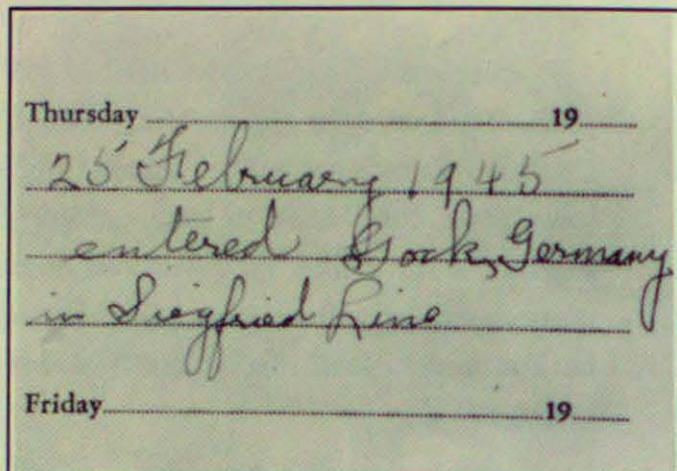 Thursday 19
25 February 1945
entered Gock, Germany
in Siegfried Line
Friday 19